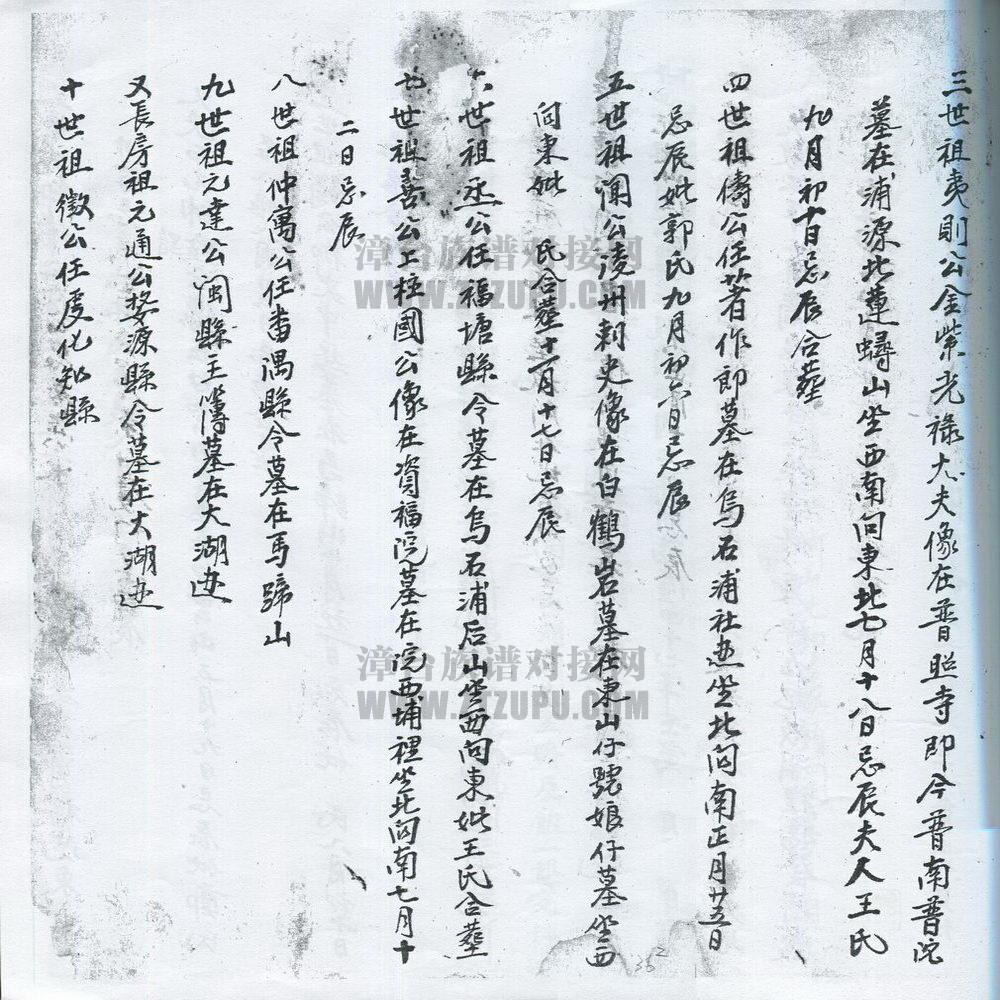 三世祖夷則公金紫光祿大夫像在普照寺即今普南普陀
墓在浦源北蓮蟳山坐西南向東北七月十八日忌辰夫人王氏
九月初十日忌辰合葬
四世祖儔公任著作郎墓在烏石浦社边坐北向南正月廿五日
忌辰妣郭氏九月初六日忌辰
五世祖澜公凌州刺史像在白鶴岩墓在東山仔號娘仔墓坐西
向東妣 氏合葬十一月十七日忌辰
六世祖丞公任福塘縣令墓在烏石浦后山坐西向東妣王氏合葬
七世祖喜公上柱國公像在資福院墓在院西埔裡坐北向南七月十
二日忌辰
八世祖仲寓公任番禺縣令墓在馬蹄山
九世祖元達公闽縣主簿墓在大湖边
又長房祖元通公婺源縣令墓在大湖边
十世祖徵公任虔化知縣
漳台族谱对接网
WWW.ZZZUPU.COM
漳台族谱对接网
WWW.ZZZUPU.COM